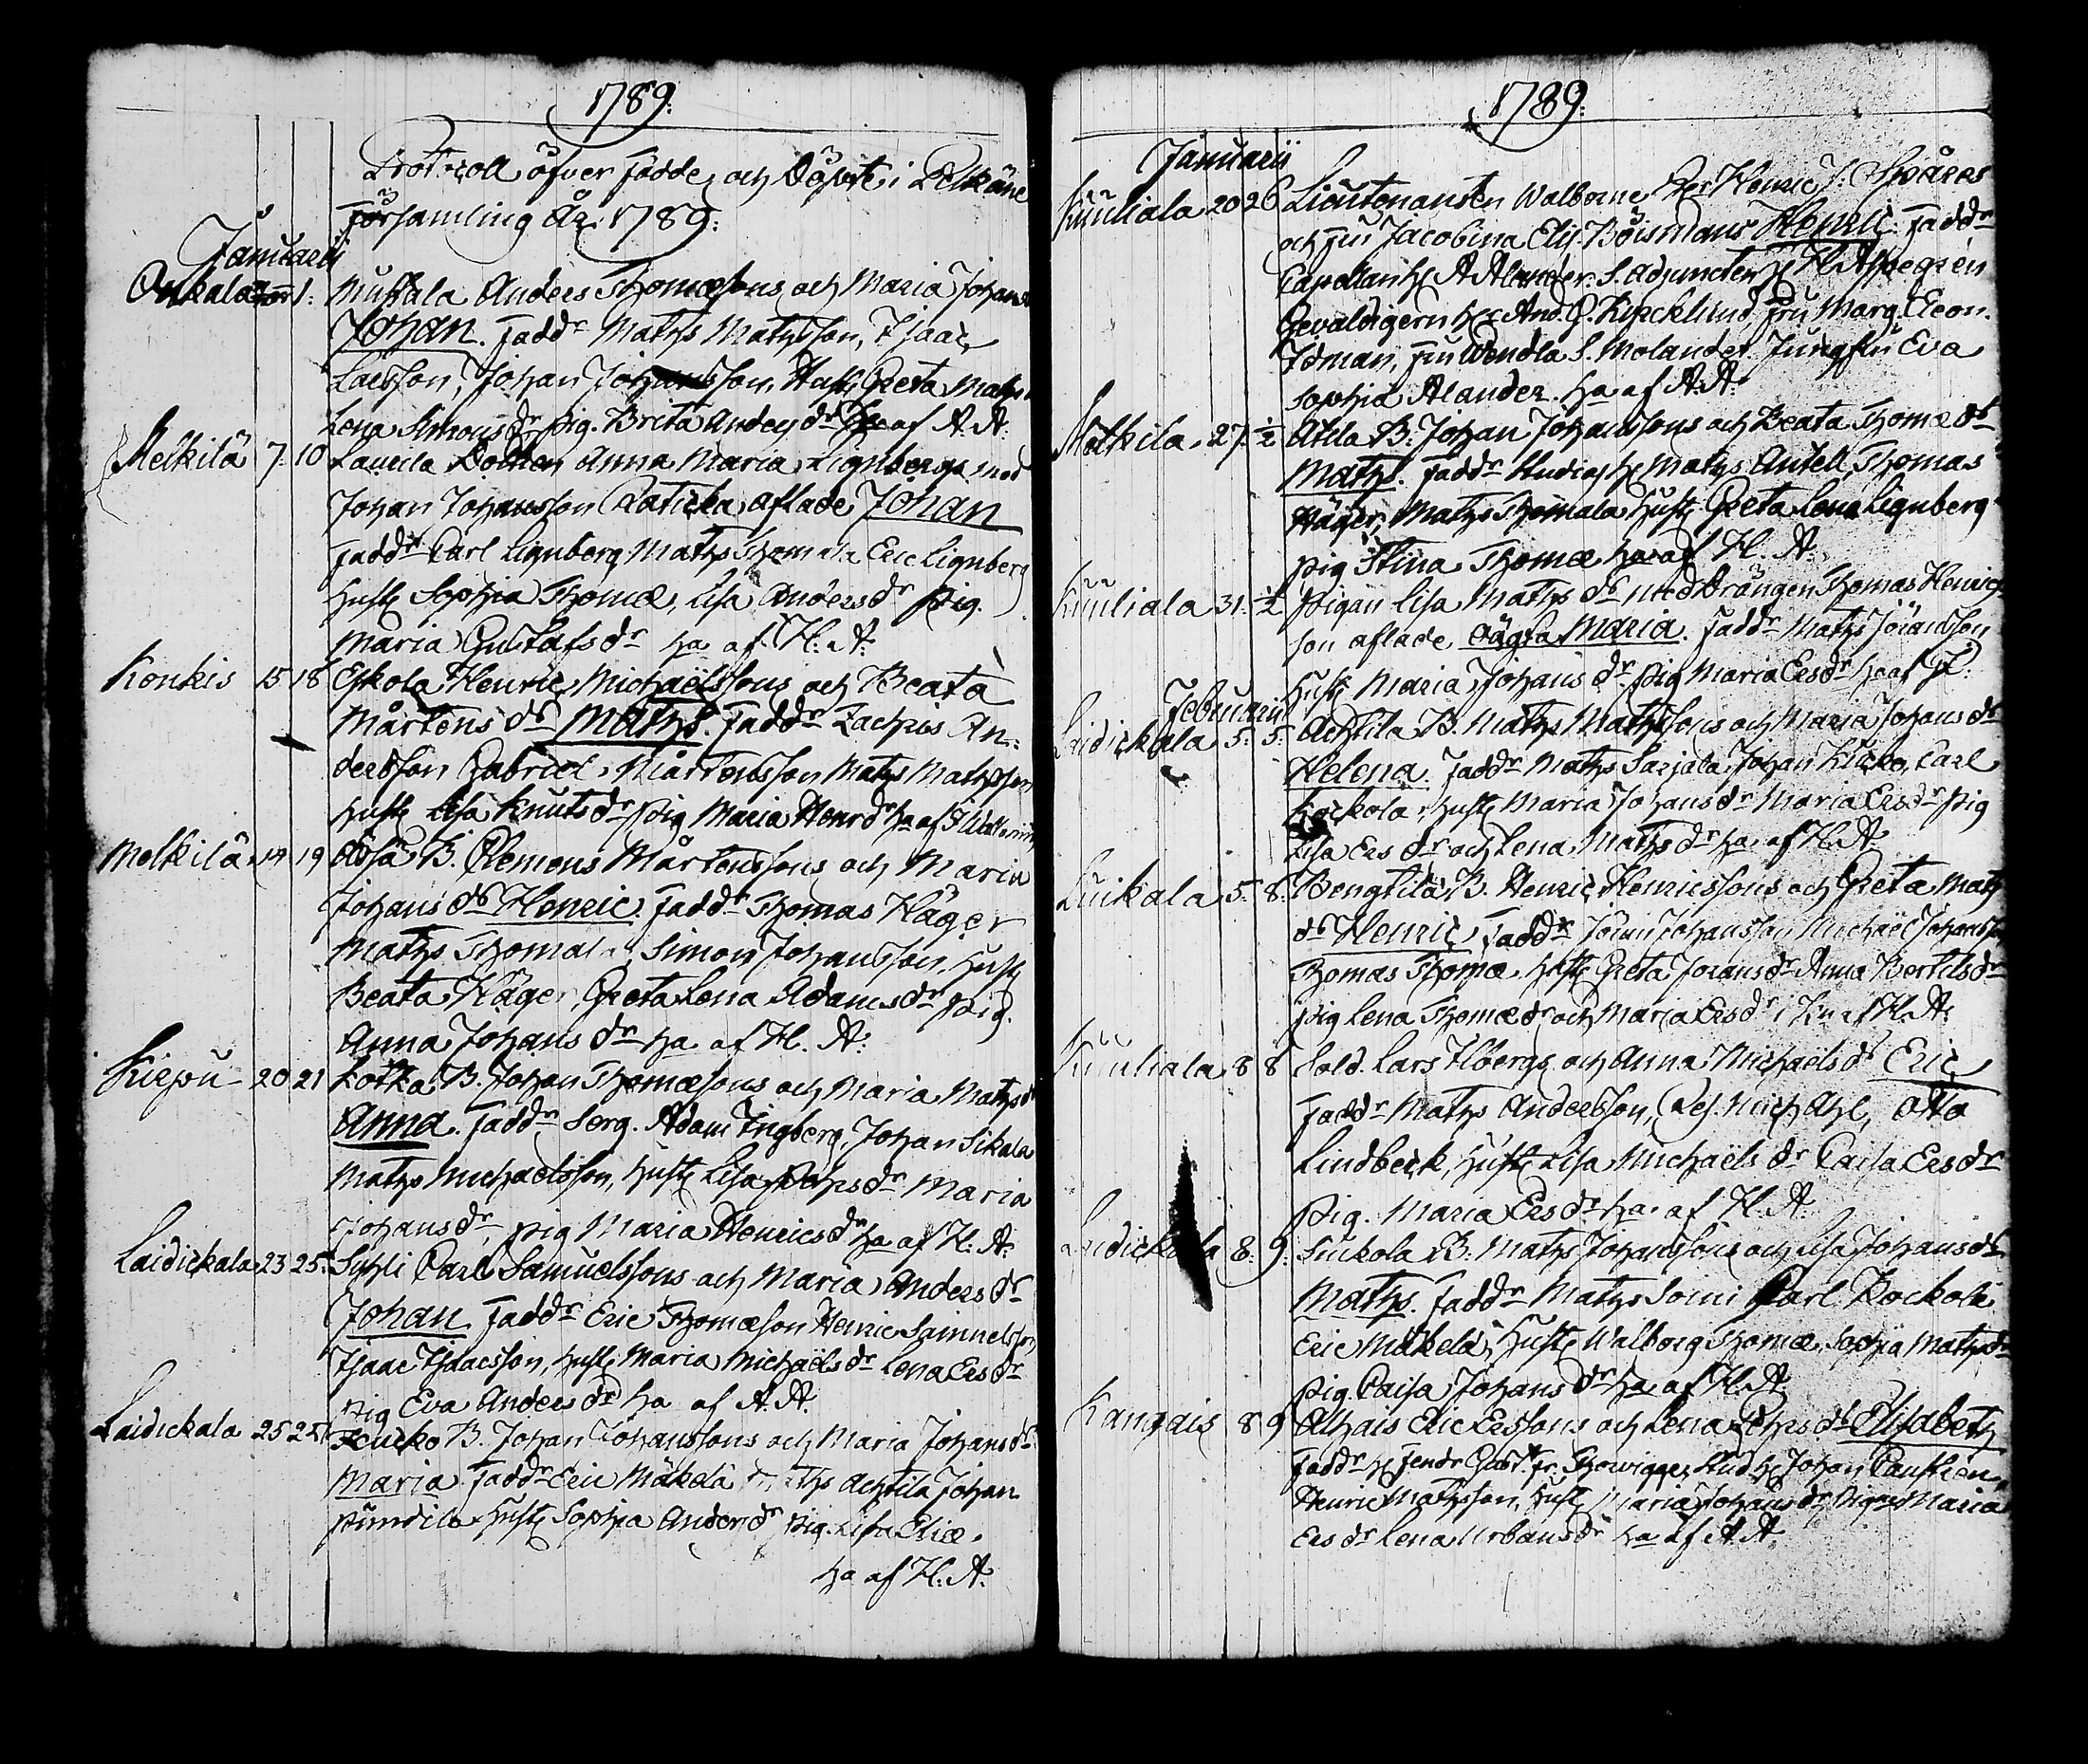 1789.
Protocoll öfver Födde och Döpte i Pelkäne
Församling År 1789:
Januarii
Onkala 1:
Muttala Anders Thomæsons och Maria Johans
Johan. Faddr Maths Mathsson, Isaac
Larsson, Johan Johansson, Hust Greta Maths
Lena Simons dr pig. Brita Anders dr ha af A. A.
Melkilä 7. 10 Laurila Anna Maria Lignbergs med
Johan Johansson Raticka aflade Johan
Faddr Carl Lignberg Maths Thomala Eric Lignberg
Hust Sophia Thomæ, Lisa Anders dr pig.
Maria Gustafs dr ha af H. A.
Konkis 15 18 Eskola Henric Michaëlssons och Beata
Mårtens dr Maths. Faddr Zachris An-
dersson Gabriel Mårtensson Maths Mathsson
Hust Lisa Knuts dr pig Maria Henr dr ha af
Melkilä 14 19 B. Clemens Mårtenssons och Maria
Johans dr Henric. Faddr Thomas Häger
Maths Thomala, Simon Johansson, Hust
Beata Häger, Greta Lena Adams dr pig.
Anna Johans dr ha af H. A:
Kirpu 20 21 Kotka B. Johan Thomæsons och Maria Maths dr
Anna. Faddr Serg. Adam Ingberg, Johan Sikala
Maths Michaelsson, Hust Lisa dr Maria
Johans dr, pig Maria Henrics dr ha af H. A.
Laidickala 23 25. Syhli Carl Samuelssons och Maria Anders dr
Johan Faddr Eric Thomæson Henric Samuelsson
Isaac Isaacsson, Hust Maria Michaëls dr Lena Ers dr
pig Eva Anders dr ha af A. A.
Laidickala 25 25 B. Johan Johanssons och Maria Johans dr
Maria Faddr Eric Mäkelä Maths Achtila Johan
Hust Sophia Anders dr pig. Lisa Eliæ.
ha af H: A:
1789.
Januarii
Kuuliala 20 26 Lieutenanten Walborne Herr Henric J: Spåres
och Fru Jacobina Elis. Böismans Henric Faddr
Capellan H A Alander. S. Adjuncten H H. Aspegrén
Gevaldigern Her And. G. Kyrcklund, Fru Marg. Eleon.
Idman, Fru Wendla S. Molander. Jungfru Eva
Sophia Alander. ha af A: A:
Mälkilä. 27 1/2 Atila B. Johan Johanssons och Beata Thomæ dr
Maths. Faddr Studios H Maths Antell, Thomas
Häger, Maths Thomala Hust Greta Lena Lignberg
pig Stina Thomæ ha af H. A.
Kuuliala 31. 1/2 Pigan Lisa Maths dr med Drängen Thomas Henrics
son aflade oägta Maria. Faddr Maths Jöransson
Hust Maria Johans dr pig Maria Ers dr ha af H:
Februarii
Laidickala 5. 5. Achtila B. Maths Mathssons och Maria Johans dr
Helena. Faddr Maths Sarjala, Johan Carl
Kockola, Hust Maria Johans dr Maria Ers dr pig
Lisa Ers dr och Lena Maths dr ha af H. A.
Luikala 5. 8. Bengtilä B. Henric Henricssons och Greta Maths
dr Henric Faddr Johansson Michaël Johansson
Thomas Thomæ Hust Greta Johans dr Anna Bertils dr
pig Lena Thomæ dr och Maria Ers dr ha af H. A:
Kuuliala 8 8 Sold. Lars och Anna Michaëls dr Eric
Faddr Maths Andersson, Otto
Lindbeck, Hust Lisa Michaëls dr Caisa Ers dr
pig. Maria Ers dr ha. af H. A.
Laidickala 8. 9. B. Maths Johanssons och Lisa Johans dr
Maths. Faddr Maths Soini Carl Kockola
Eric Mäkelä, Hust Walborg Thomæ Sophia Maths dr
pig Caisa Johans dr ha af H. A.
Kangais 8 9 Alhais Eric Erssons och Lena dr Elisabeth
Faddr H Fendr Gust. Fr. Stud H Johan
Henric Mathsson, Hust Maria Johans dr pigan Maria
Ers dr Lena Urbans dr ha af A A.